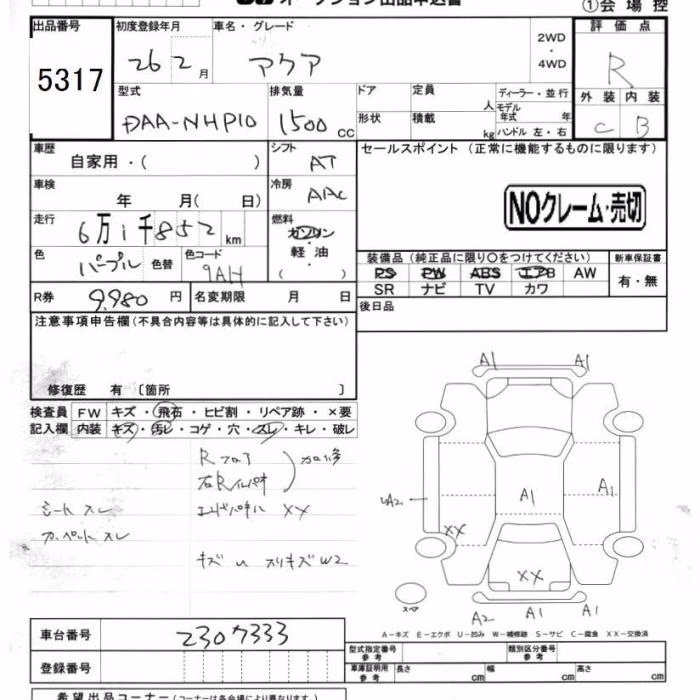 オークション出品申込書
①会場控
出品番号 初度登録年月 車名・グレード 2WD・4WD 評価点
5317 26 2月 アクア R
型式 排気量 ドア 定員 人 ディーラー・並行 外装 内装
DAA-NHP10 1500cc 形状 積載 kg モデル年式 年 ハンドル 左・右 C B
車歴 自家用・( ) シフト AT セールスポイント (正常に機能するものに限ります)
車検 年 月( 日) 冷房 AAC
NOクレーム・売切
走行 6万1千852km 燃料 ガソリン・軽油 ( )
色 パープル 色替 色コード 9AH
装備品 (純正品に限り○をつけてください) 新車保証書
PS PW ABS エアB AW 有・無
SR ナビ TV カワ
R券 9,980円 名変期限 月 日 後日品
注意事項申告欄(不具合内容等は具体的に記入して下さい)
修復歴 有〔箇所 〕
検査員 FW キズ・飛石・ヒビ割・リペア跡・×要
記入欄 内装 キズ・汚レ・コゲ・穴・スレ・キレ・破レ
Rフロア
シート スレ
カーペット スレ
XX
キズ スリキズ W2
A1 A1
A1 A1
UA2
XX
XX
スペア
A2 A1 A1
A-キズ E-エクボ U-凹み W-補修跡 S-サビ C-腐食 XX-交換済
車台番号 2307333
型式指定番号 参考 類別区分番号 参考
登録番号 車庫証明用 参考 長さ cm 幅 cm 高さ cm
希望出品コーナー(コーナーは各会場により異なります。)